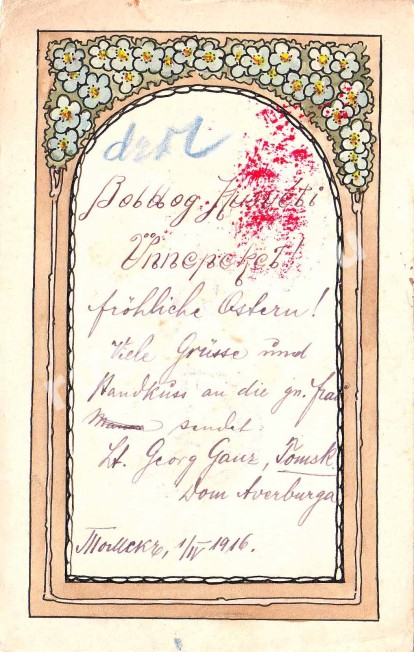 Boldog Húsvéti
Ünnepeket!
fröhliche Ostern!
Viele Grüsse und
Handkuss an die gn. Frau
sendet
Lt. Georg Ganz, Tomsk
Dom Averburga
Томскъ, 1/IV 1916.